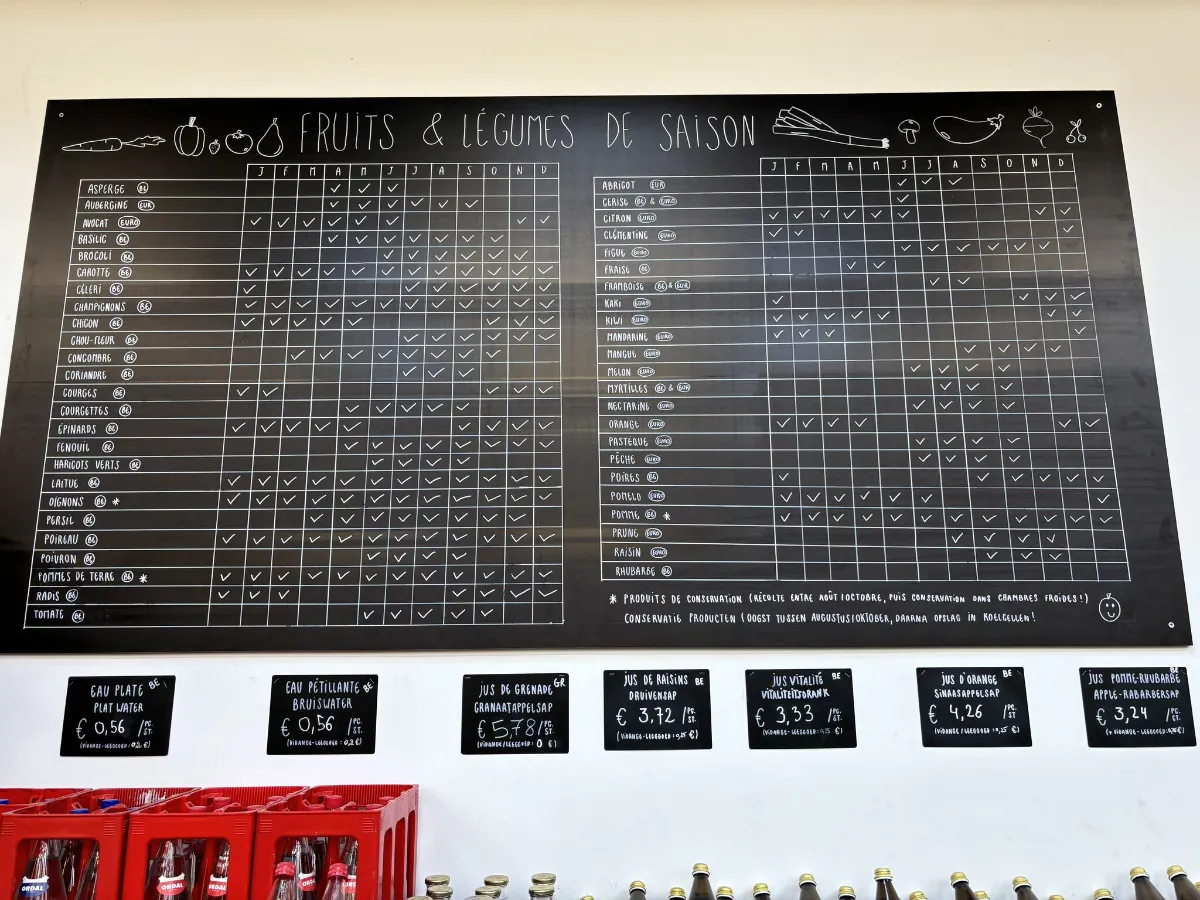 FRUITS & LÉGUMES DE SAISON
J F M A M J J A S O N D
ASPERGE BE
AUBERGINE EUR
AVOCAT EURO
BASILIC BE
BROCOLI BE
CAROTTE BE
CÉLERI BE
CHAMPIGNONS BE
CHICON BE
CHOU-FLEUR BE
CONCOMBRE BE
CORIANDRE BE
COURGES BE
COURGETTES BE
EPINARDS BE
FENOUIL BE
HARICOTS VERTS BE
LAITUE BE
OIGNONS BE *
PERSIL BE
POIREAU BE
POIVRON BE
POMMES DE TERRE BE *
RADIS BE
TOMATE BE
J F M A M J J A S O N D
ABRICOT EUR
CERISE BE & EURO
CITRON EURO
CLÉMENTINE EURO
FIGUE EURO
FRAISE BE
FRAMBOISE BE & EUR
KAKI EURO
KIWI EURO
MANDARINE EURO
MANGUE EURO
MELON EURO
MYRTILLES BE & EUR
NECTARINE EURO
ORANGE EURO
PASTÈQUE EURO
PÊCHE EURO
POIRES BE
POMELO EURO
POMME BE *
PRUNE EURO
RAISIN EURO
RHUBARBE BE
* PRODUITS DE CONSERVATION (RÉCOLTE ENTRE AOÛT/OCTOBRE, PUIS CONSERVATION DANS CHAMBRES FROIDES!)
CONSERVATIE PRODUCTEN (OOGST TUSSEN AUGUSTUS/OKTOBER, DAARNA OPSLAG IN KOELCELLEN!
EAU PLATE BE
PLAT WATER
€ 0,56 /PC. ST.
(VIDANGE-LEEGGOED: 0,2 €)
EAU PÉTILLANTE BE
BRUISWATER
€ 0,56 /PC. ST.
(VIDANGE-LEEGGOED: 0,2 €)
JUS DE GRENADE GR
GRANAATAPPELSAP
€ 5,78 /PC. ST.
(VIDANGE/LEEGGOED: 0 €)
JUS DE RAISINS BE
DRUIVENSAP
€ 3,72 /PC. ST.
(VIDANGE-LEEGGOED: 0,15 €)
JUS VITALITÉ BE
VITALITEITSDRANK
€ 3,33 /PC. ST.
(VIDANGE-LEEGGOED: 0,15 €)
JUS D'ORANGE BE
SINAASAPPELSAP
€ 4,26 /PC. ST.
(VIDANGE/LEEGGOED: 0,15 €)
JUS POMME-RHUBARBE BE
APPLE-RABARBERSAP
€ 3,24 /PC. ST.
ORDAL
ORDAL
ORDAL
ORDAL